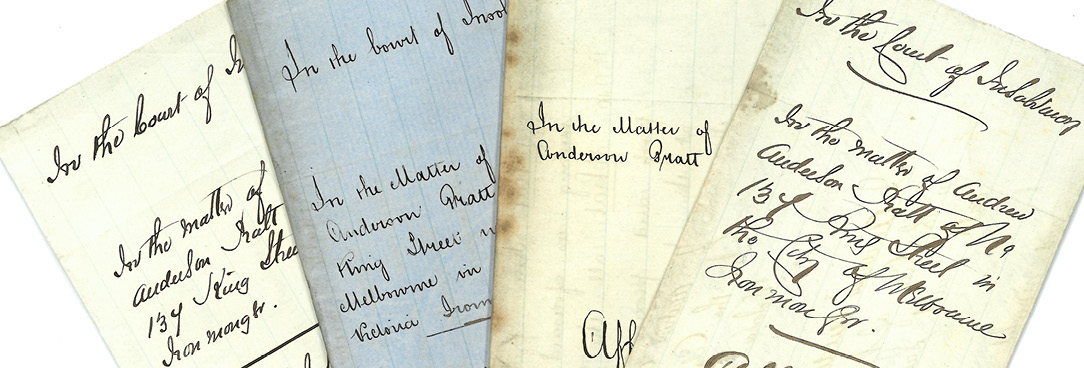 In the Court of In
In the matter of
Anderson Pratt
134 King Stree
Iron monger.
In the Court of Insol
In the Matter of
Anderson Pratt
King Street
Melbourne in
Victoria Iron
In the Matter of
Anderson Pratt
Aff
In the Court of Insolvency
In the matter of Andrew
Anderson Pratt of No
134 King Street in
the City of Melbourne
Iron monger.